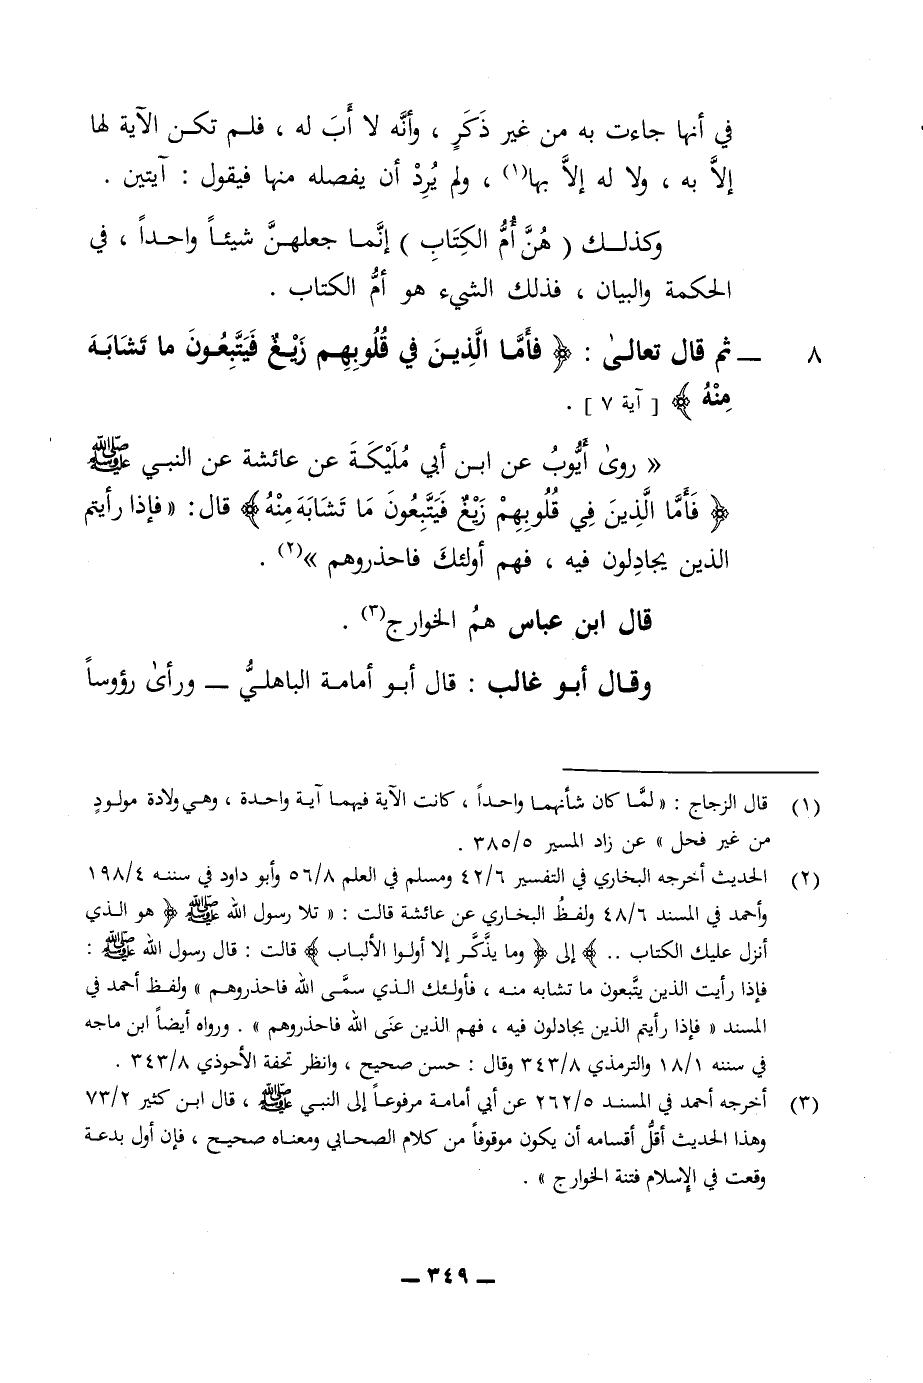 في أنها جاءت به من غير ذَكَرٍ ، وأنَّه لا أَبَ له ، فلم تكن الآية لها
إلاَّ به ، ولا له إلاَّ بها(١) ، ولم يُرِدْ أن يفصله منها فيقول : آيتين .
وكذلك ( هُنَّ أُمُّ الكِتَابِ ) إنَّما جعلهنَّ شيئاً واحداً ، في
الحكمة والبيان ، فذلك الشيء هو أمُّ الكتاب .
٨ ــ ثم قال تعالىٰ : ﴿ فأَمَّا الَّذِينَ في قُلُوبِهِم زَيْغٌ فَيَتَّبِعُونَ ما تَشَابَهَ
مِنْهُ ﴾ [ آية ٧ ] .
« روىٰ أَيُّوبُ عن ابن أبي مُلَيْكَةَ عن عائشة عن النبي ﷺ
﴿ فَأَمَّا الَّذِينَ فِي قُلُوبِهِمْ زَيْغٌ فَيَتَّبِعُونَ مَا تَشَابَهَ مِنْهُ ﴾ قال : « فإذا رأيتم
الذين يجادِلون فيه ، فهم أولئكَ فاحذروهم »(٢) .
قال ابن عباس همُ الخوارج(٣) .
وقال أبو غالب : قال أبو أمامة الباهليُّ ــ ورأىٰ رؤوساً
(١) قال الزجاج : « لمَّا كان شأنهما واحداً ، كانت الآية فيهما آية واحدة ، وهي ولادة مولودٍ
من غير فحل » عن زاد المسير ٣٨٥/٥ .
(٢) الحديث أخرجه البخاري في التفسير ٤٢/٦ ومسلم في العلم ٥٦/٨ وأبو داود في سننه ١٩٨/٤
وأحمد في المسند ٤٨/٦ ولفظُ البخاري عن عائشة قالت : « تلا رسول الله ﷺ ﴿ هو الذي
أنزل عليك الكتاب .. ﴾ إلى ﴿ وما يذَّكَّر إلا أولوا الألباب ﴾ قالت : قال رسول الله ﷺ :
فإذا رأيت الذين يتَّبعون ما تشابه منه ، فأولئك الذي سمَّى الله فاحذروهم » ولفظ أحمد في
المسند « فإذا رأيتم الذين يجادلون فيه ، فهم الذين عنَى الله فاحذروهم » . ورواه أيضاً ابن ماجه
في سننه ١٨/١ والترمذي ٣٤٣/٨ وقال : حسن صحيح ، وانظر تحفة الأحوذي ٣٤٣/٨ .
(٣) أخرجه أحمد في المسند ٢٦٢/٥ عن أبي أمامة مرفوعاً إلى النبي ﷺ ، قال ابن كثير ٧٣/٢
وهذا الحديث أقلُّ أقسامه أن يكون موقوفاً من كلام الصحابي ومعناه صحيح ، فإن أول بدعة
وقعت في الإسلام فتنة الخوارج » .
ــ ٣٤٩ ــ